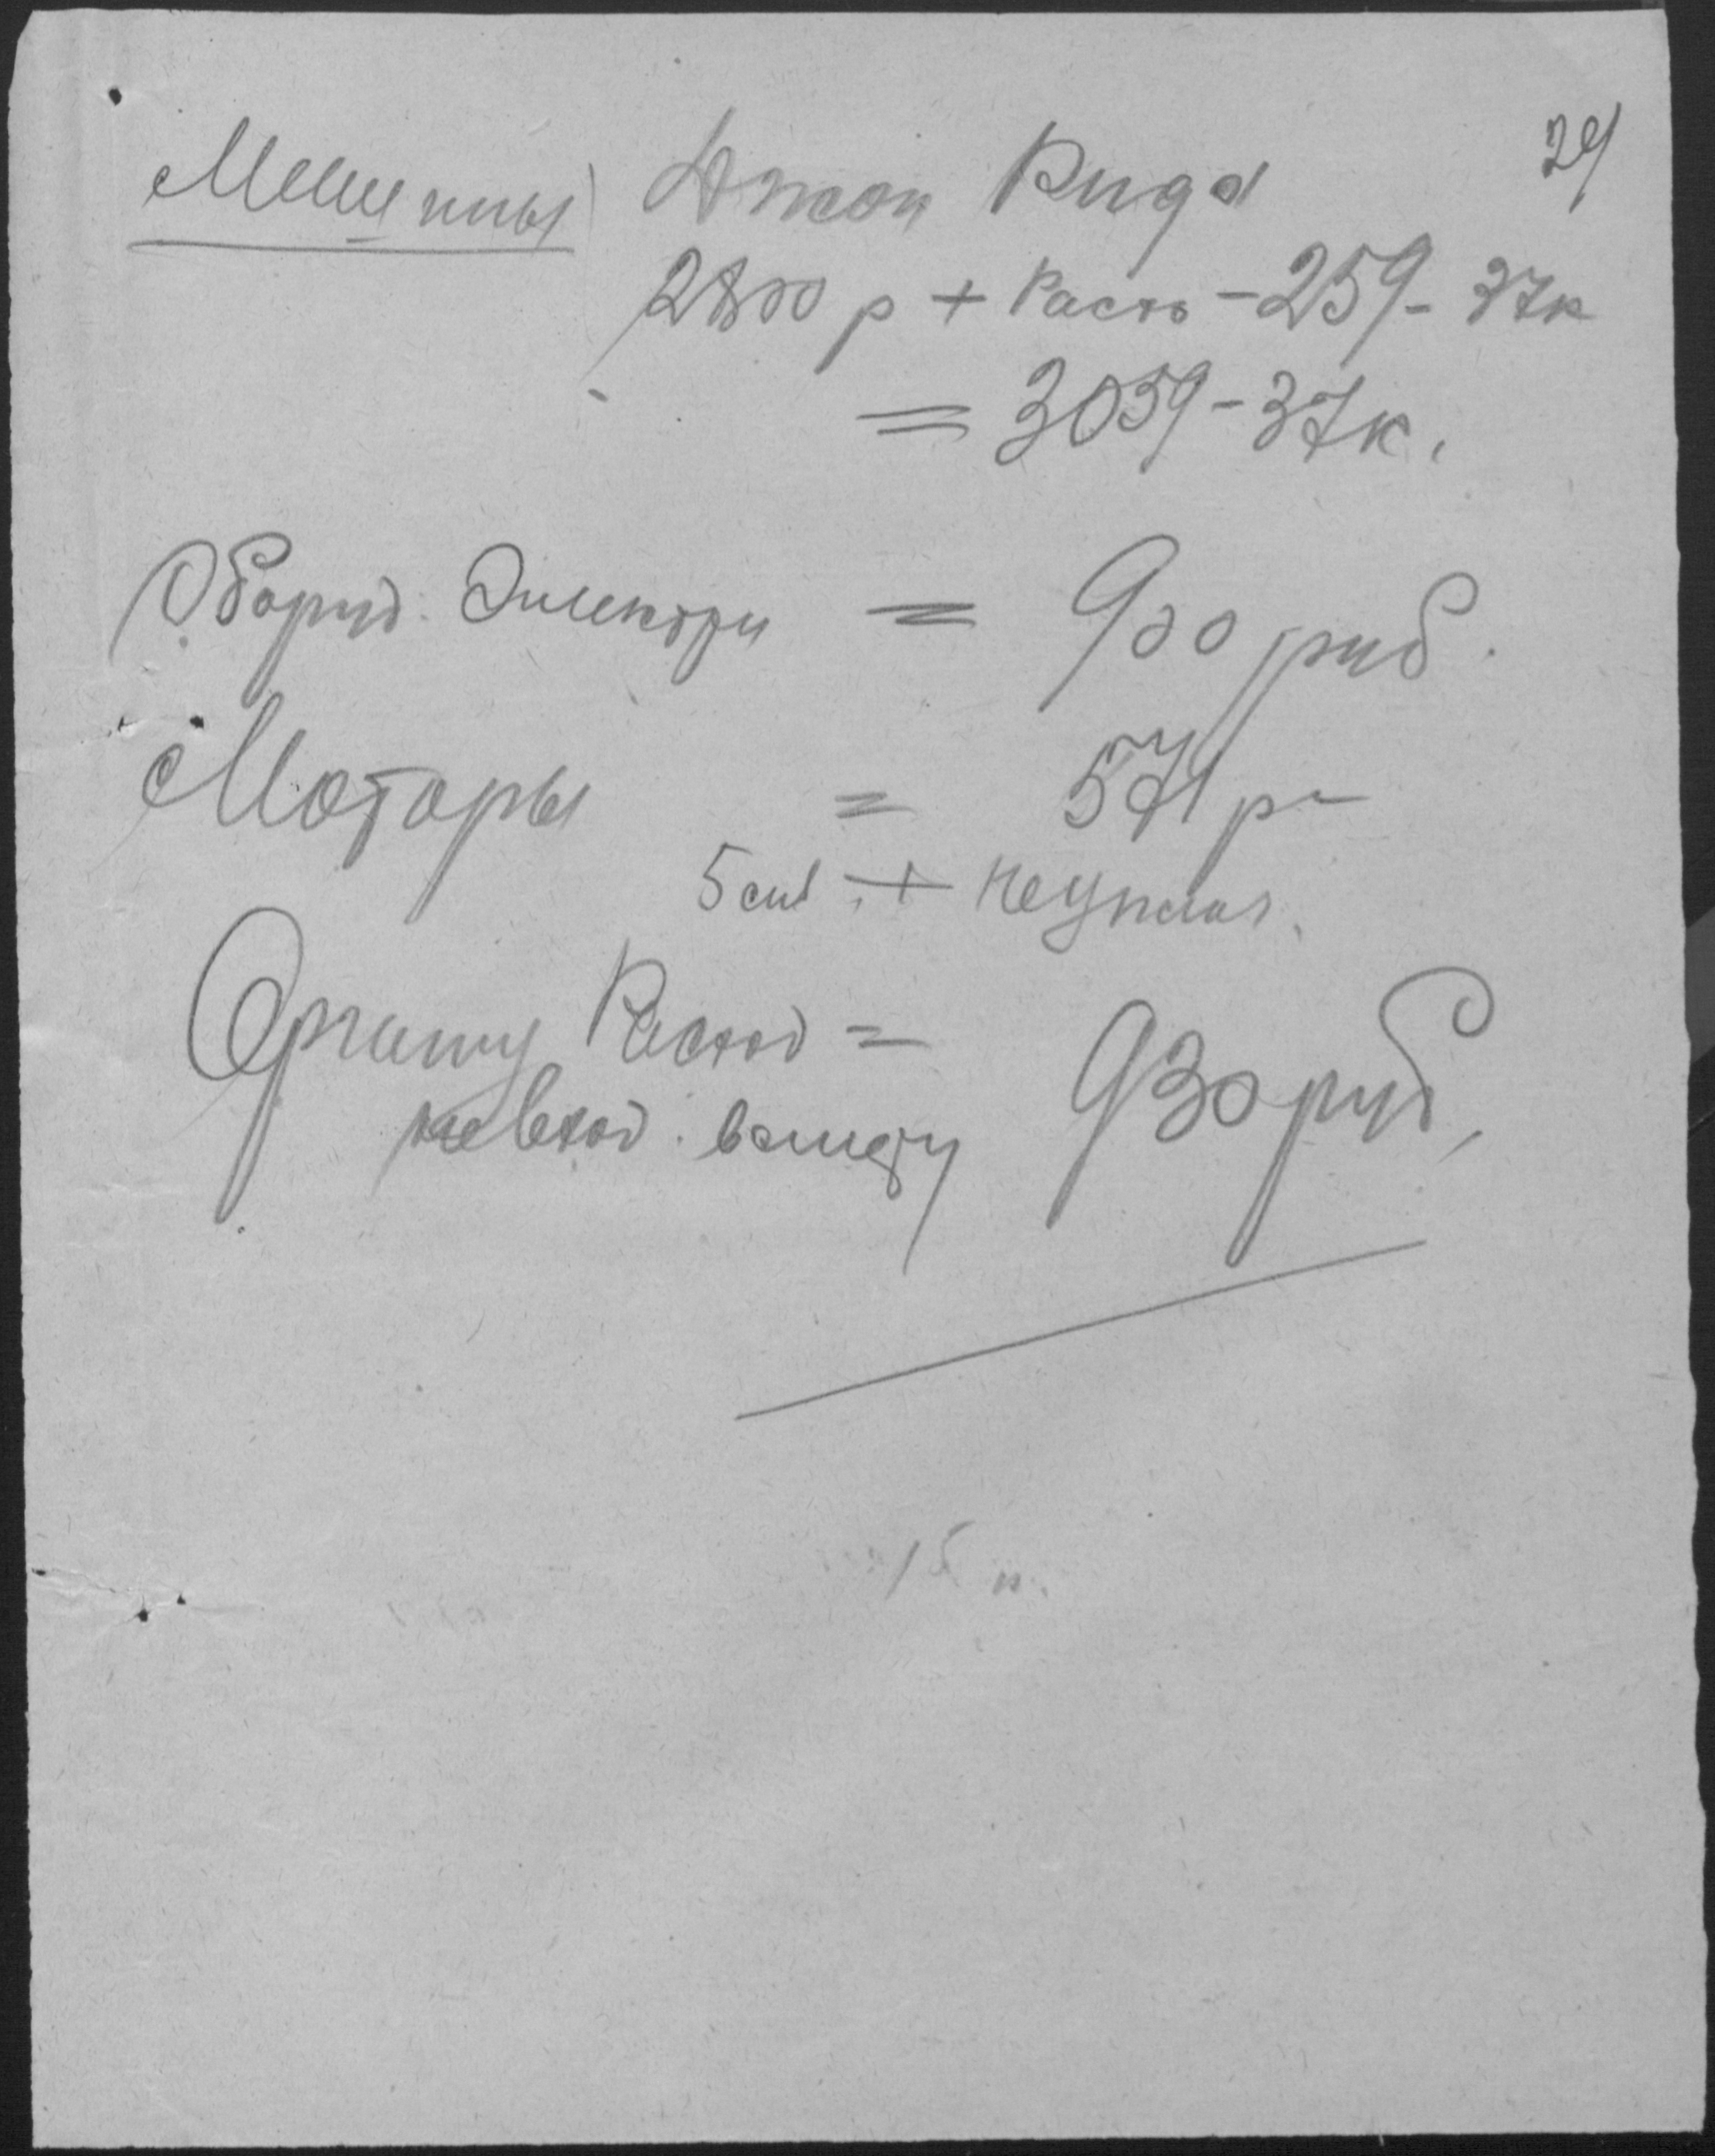 29
Машины Джон Рида
2800 р + Расхо - 259 - 37к
= 3059 - 37к.
Оборуд. Электри = 900 руб.
Моторы = 571 р -
5 сил. +
Организ Расход =
не вход. в смету 930 руб,
15 к.